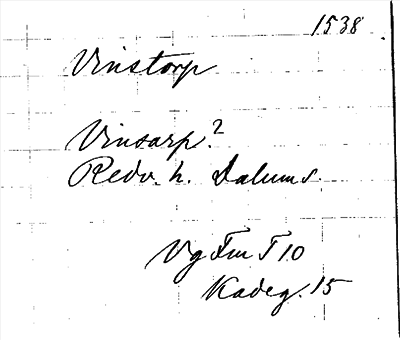 1538
Vinstorp
Vinsarp?
Redv. h. Dalums.
Vg Fm T 10
Kadeg. 15